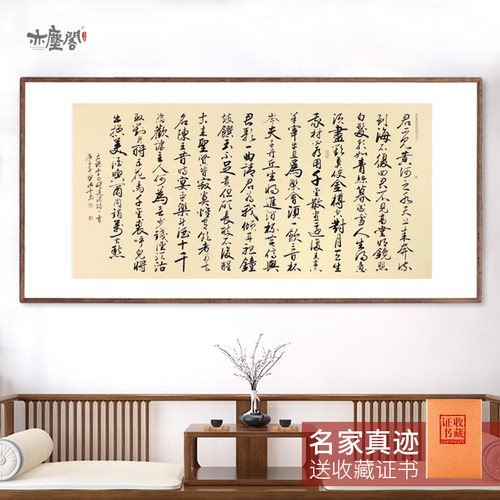 亦塵閣
君不見黃河之水天上來奔流
到海不復回君不見高堂明鏡悲
白髮朝如青絲暮成雪人生得意
須盡歡莫使金樽空對月天生
我材必有用千金散盡還復來烹
羊宰牛且為樂會須一飲三百杯
岑夫子丹丘生將進酒杯莫停與
君歌一曲請君為我傾耳聽鐘
鼓饌玉不足貴但願長醉不復醒
古來聖賢皆寂寞惟有飲者留其
名陳王昔時宴平樂斗酒十千
恣歡謔主人何為言少錢徑須沽
取對君酌五花馬千金裘呼兒將
出換美酒與爾同銷萬古愁
名家真迹
送收藏证书
收藏
证书